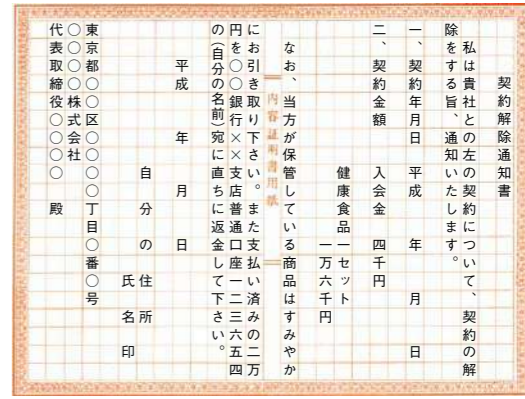 契約解除通知書
私は貴社との左の契約について、契約の解
除をする旨、通知いたします。
一、契約年月日　平成　年　月　日
二、契約金額　入会金　四千円
健康食品一セット
一万六千円
なお、当方が保管している商品はすみやか
内容証明書用紙
にお引き取り下さい。また支払い済みの二万
円を〇〇銀行××支店普通口座一二三六五四
の(自分の名前)宛に直ちに返金して下さい。
平成　年　月　日
自分の住所
氏名　印
東京都〇〇区〇〇〇丁目〇番〇号
〇〇〇株式会社
代表取締役〇〇〇　殿